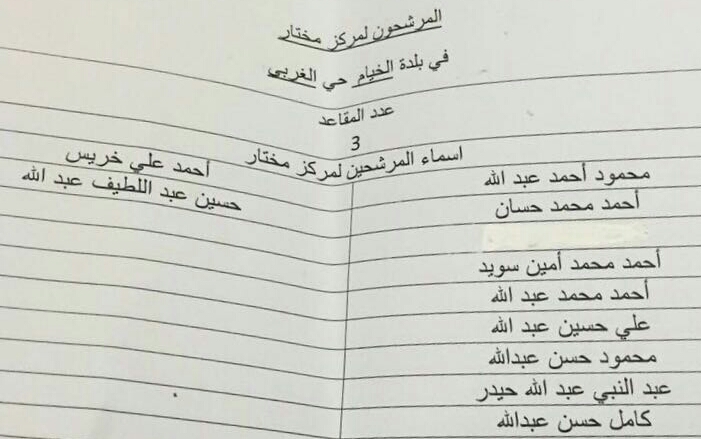 المرشحون لمركز مختار
في بلدة الخيام حي الغربي
عدد المقاعد
3
اسماء المرشحين لمركز مختار
محمود أحمد عبد الله
أحمد محمد حسان
أحمد محمد أمين سويد
أحمد محمد عبد الله
علي حسين عبد الله
محمود حسن عبدالله
عبد النبي عبد الله حيدر
كامل حسن عبدالله
أحمد علي خريس
حسين عبد اللطيف عبد الله